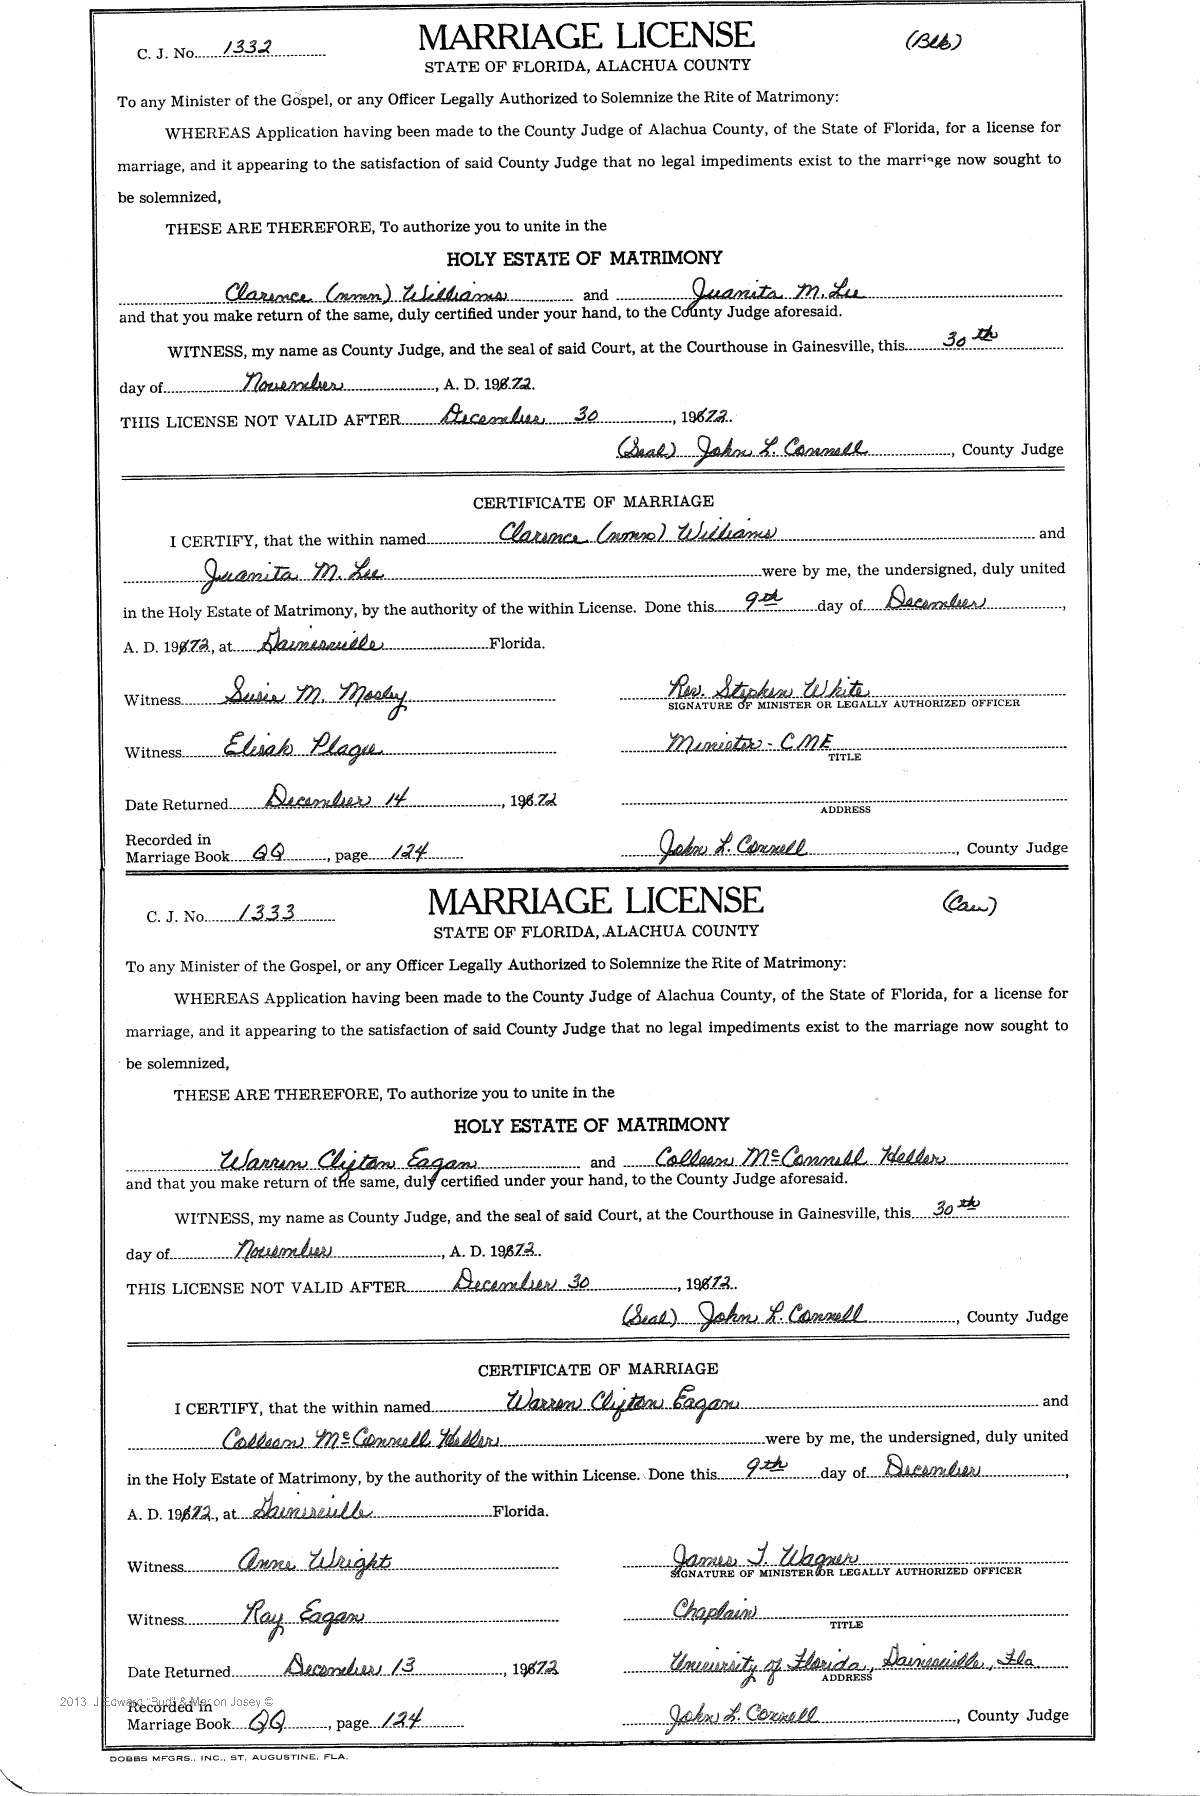 C. J. No. 1332
MARRIAGE LICENSE
(Blk)
STATE OF FLORIDA, ALACHUA COUNTY
To any Minister of the Gospel, or any Officer Legally Authorized to Solemnize the Rite of Matrimony:
WHEREAS Application having been made to the County Judge of Alachua County, of the State of Florida, for a license for
marriage, and it appearing to the satisfaction of said County Judge that no legal impediments exist to the marriage now sought to
be solemnized,
THESE ARE THEREFORE, To authorize you to unite in the
HOLY ESTATE OF MATRIMONY
Clarence (nmn) Williams and Juanita M. Lee
and that you make return of the same, duly certified under your hand, to the County Judge aforesaid.
WITNESS, my name as County Judge, and the seal of said Court, at the Courthouse in Gainesville, this 30th
day of November, A. D. 1972.
THIS LICENSE NOT VALID AFTER December 30, 1972.
(Seal) John L. Connell, County Judge
CERTIFICATE OF MARRIAGE
I CERTIFY, that the within named Clarence (nmn) Williams and
Juanita M. Lee were by me, the undersigned, duly united
in the Holy Estate of Matrimony, by the authority of the within License. Done this 9th day of December,
A. D. 1972, at Gainesville Florida.
Witness Susie M. Mosley
Rev. Stephen White
SIGNATURE OF MINISTER OR LEGALLY AUTHORIZED OFFICER
Witness Elisah Plague
Minister - CME
TITLE
Date Returned December 14, 1972
ADDRESS
Recorded in
Marriage Book QQ, page 124
John L. Connell, County Judge
C. J. No. 1333
MARRIAGE LICENSE
(Cau)
STATE OF FLORIDA, ALACHUA COUNTY
To any Minister of the Gospel, or any Officer Legally Authorized to Solemnize the Rite of Matrimony:
WHEREAS Application having been made to the County Judge of Alachua County, of the State of Florida, for a license for
marriage, and it appearing to the satisfaction of said County Judge that no legal impediments exist to the marriage now sought to
be solemnized,
THESE ARE THEREFORE, To authorize you to unite in the
HOLY ESTATE OF MATRIMONY
Warren Clifton Eagan and Colleen McConnell Heller
and that you make return of the same, duly certified under your hand, to the County Judge aforesaid.
WITNESS, my name as County Judge, and the seal of said Court, at the Courthouse in Gainesville, this 30th
day of November, A. D. 1972.
THIS LICENSE NOT VALID AFTER December 30, 1972.
(Seal) John L. Connell, County Judge
CERTIFICATE OF MARRIAGE
I CERTIFY, that the within named Warren Clifton Eagan and
Colleen McConnell Heller were by me, the undersigned, duly united
in the Holy Estate of Matrimony, by the authority of the within License. Done this 9th day of December,
A. D. 1972, at Gainesville Florida.
Witness Anne Wright
James T. Wagner
SIGNATURE OF MINISTER OR LEGALLY AUTHORIZED OFFICER
Witness Ray Eagan
Chaplain
TITLE
Date Returned December 13, 1972
University of Florida, Gainesville, Fla
ADDRESS
2013 J Edward "Budd" & Marion Josey ©
Recorded in
Marriage Book QQ, page 124
John L. Connell, County Judge
DOBBS MFGRS., INC., ST. AUGUSTINE, FLA.